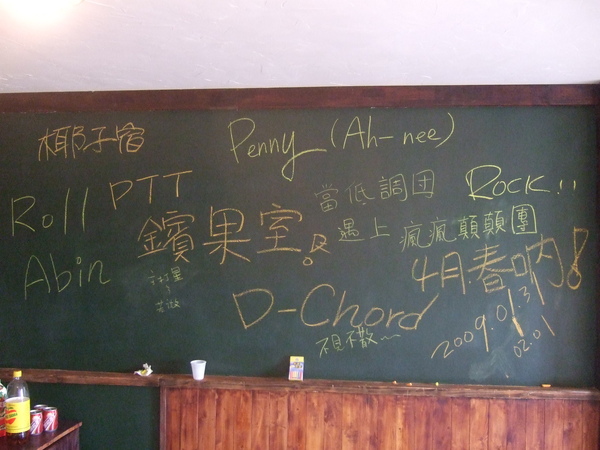 椰子宿
Penny (Ah-nee)
Roll
PTT
當低調団
ROCK!!
鑌果室!
遇上瘋瘋顛顛團
Abin
4月.春吶!
D-Chord
不見不散~
2009.01.31
02.01